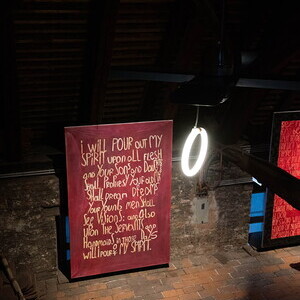 i WiLL POUR OUT MY
SPiRiT UPON ALL FLESH
AND YOUR SONS AND
SHALL PROPHESY YOUR OLD
SHALL DREAM DREAMS
YOUR YOUNG MEN SHALL
SEE ViSiONS: AND ALSO
UPON THE SERVANTS AND
HANDMAiDS iN THOSE DAYS
WiLL POUR OUT MY SPiRiT.